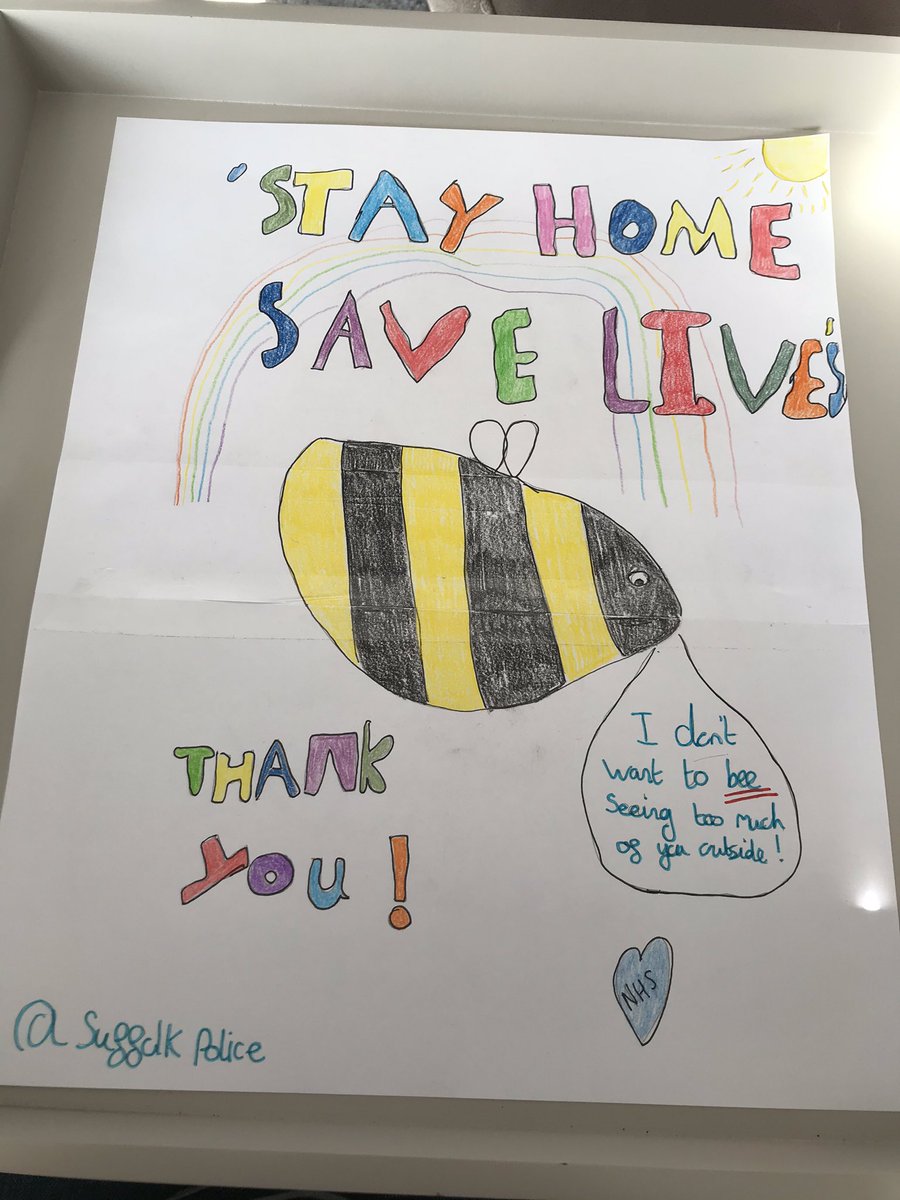 'STAY HOME
SAVE LIVES'
I don't
want to bee
seeing too much
of you outside!
THANK
YOU!
NHS
@ Suffolk Police